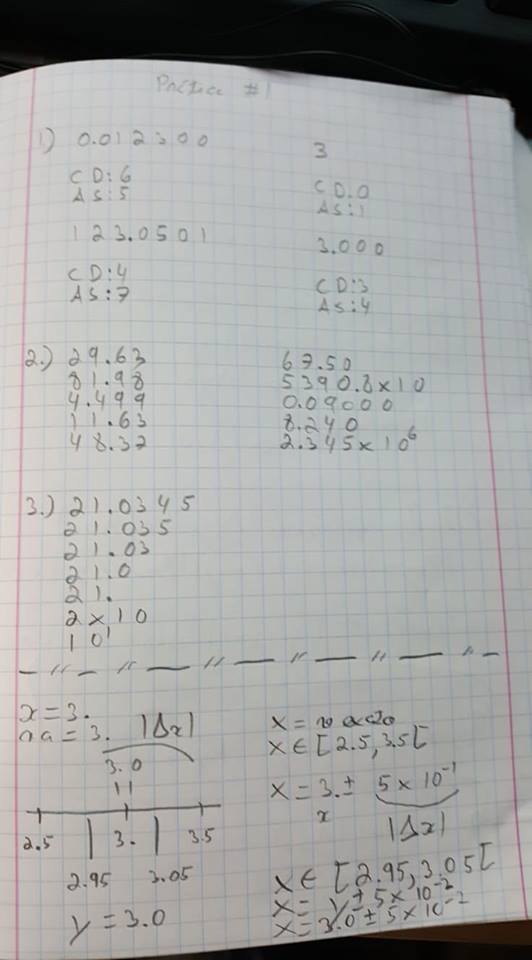 Practice #1
1) 0.012300
CD:6
AS:5
3
CD.0
AS:1
123.0501
CD:4
AS:7
3.000
CD:3
AS:4
2.) 29.63
81.98
4.499
11.63
48.32
67.50
5390.8x10
0.09000
8.240
2.345x10⁶
3.) 21.0345
21.035
21.03
21.0
21.
2x10
10¹
x=3.
xa=3. |Δx|
3.0
2.5 | 3. | 3.5
2.95 3.05
y=3.0
x=
x∈[2.5,3.5[
x=3.± 5x10⁻¹
x |Δx|
x∈[2.95,3.05[
x= y±5x10⁻²
x=3.0±5x10⁻²